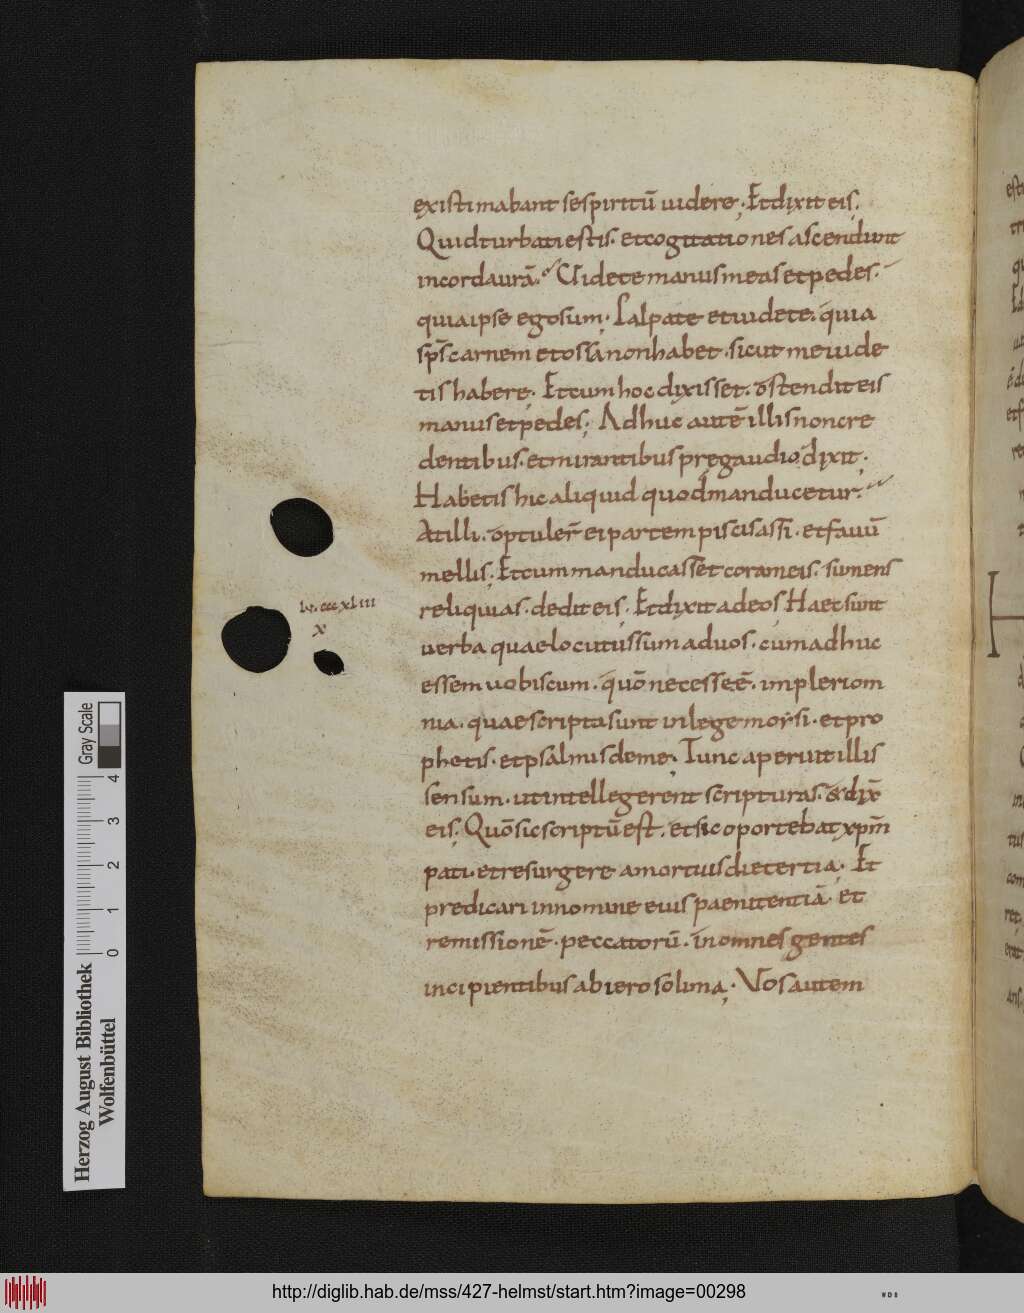 existimabant sespiritū uidere; Etdixit eis;
Quidturbatiestis. etcogitationes ascendunt
incordaurā. Uidete manusmeas etpedes.
quiaipse egosum; Palpate etuidete. quia
sp̄s carnem etossa nonhabet. sicut meuide
tis habere; Etcumhoc dixisset. ostendit eis
manusetpedes; Adhuc autē illisnoncre
dentibus. etmirantibus pręgaudio. dixit.
Habetis hic aliquid quodmanducetur.
Atilli. optuler̄ ei partem piscisassi. etfauū
mellis; Etcum manducasset corameis. sumens
reliquias. dedit eis; Etdixit adeos Haec sunt
lv. cccxliii
x
uerba quaelocutussum aduos. cum adhuc
essem uobiscum. quō necesseē. impleriom
nia. quae scripta sunt inlege morsi. etpro
phetis. etpsalmis deme; Tunc aperuit illis
sensum. utintellegerent scripturas. & dix̄
eis; Quō sic scriptū est. etsic oportebat xpm̄
pati. etresurgere amortuis dietertia; Et
predicari innomine eius paenitentiā. et
remissionē. peccatorū. inomnes gentes
incipientibus abierosolima; Vos autem
Herzog August Bibliothek
Wolfenbüttel
Gray Scale
0 1 2 3 4
http://diglib.hab.de/mss/427-helmst/start.htm?image=00298